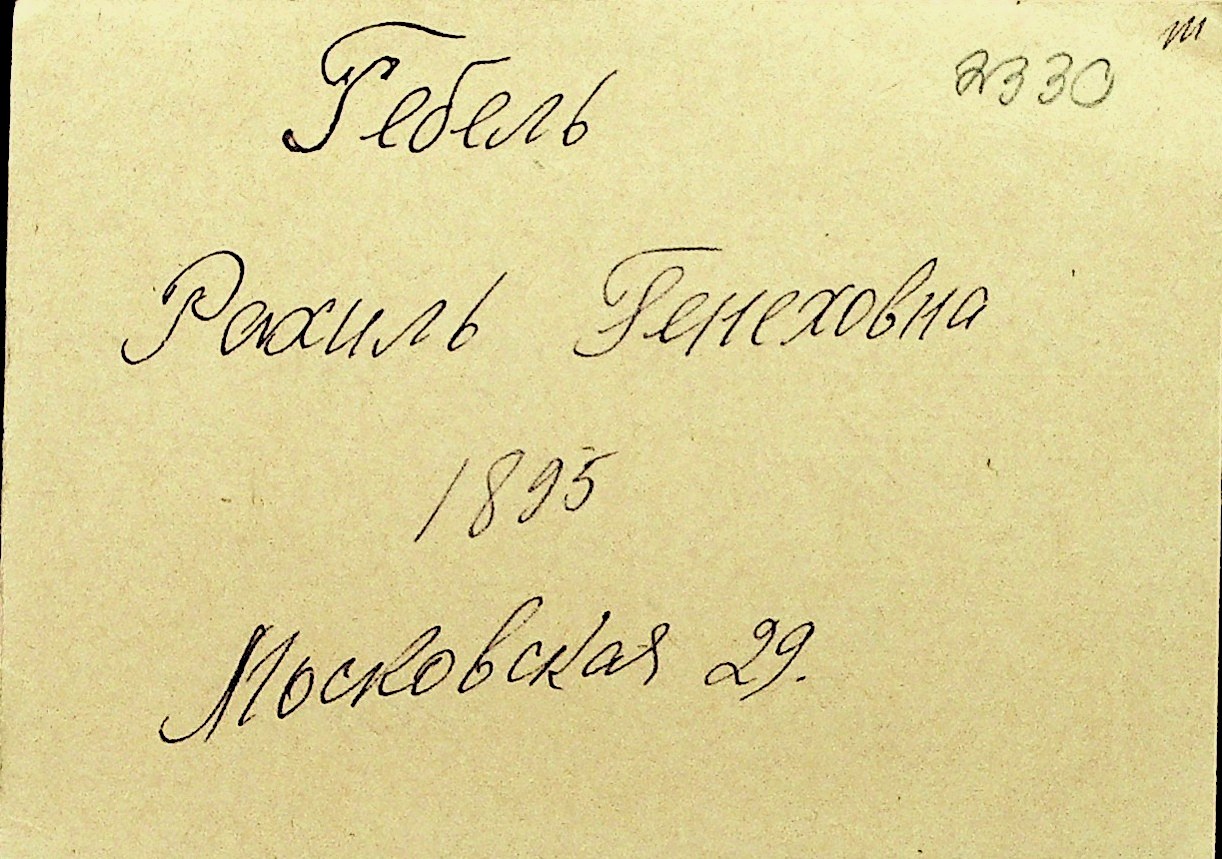 2330
Гебель
Рахиль Генеховна
1895
Московская 29.